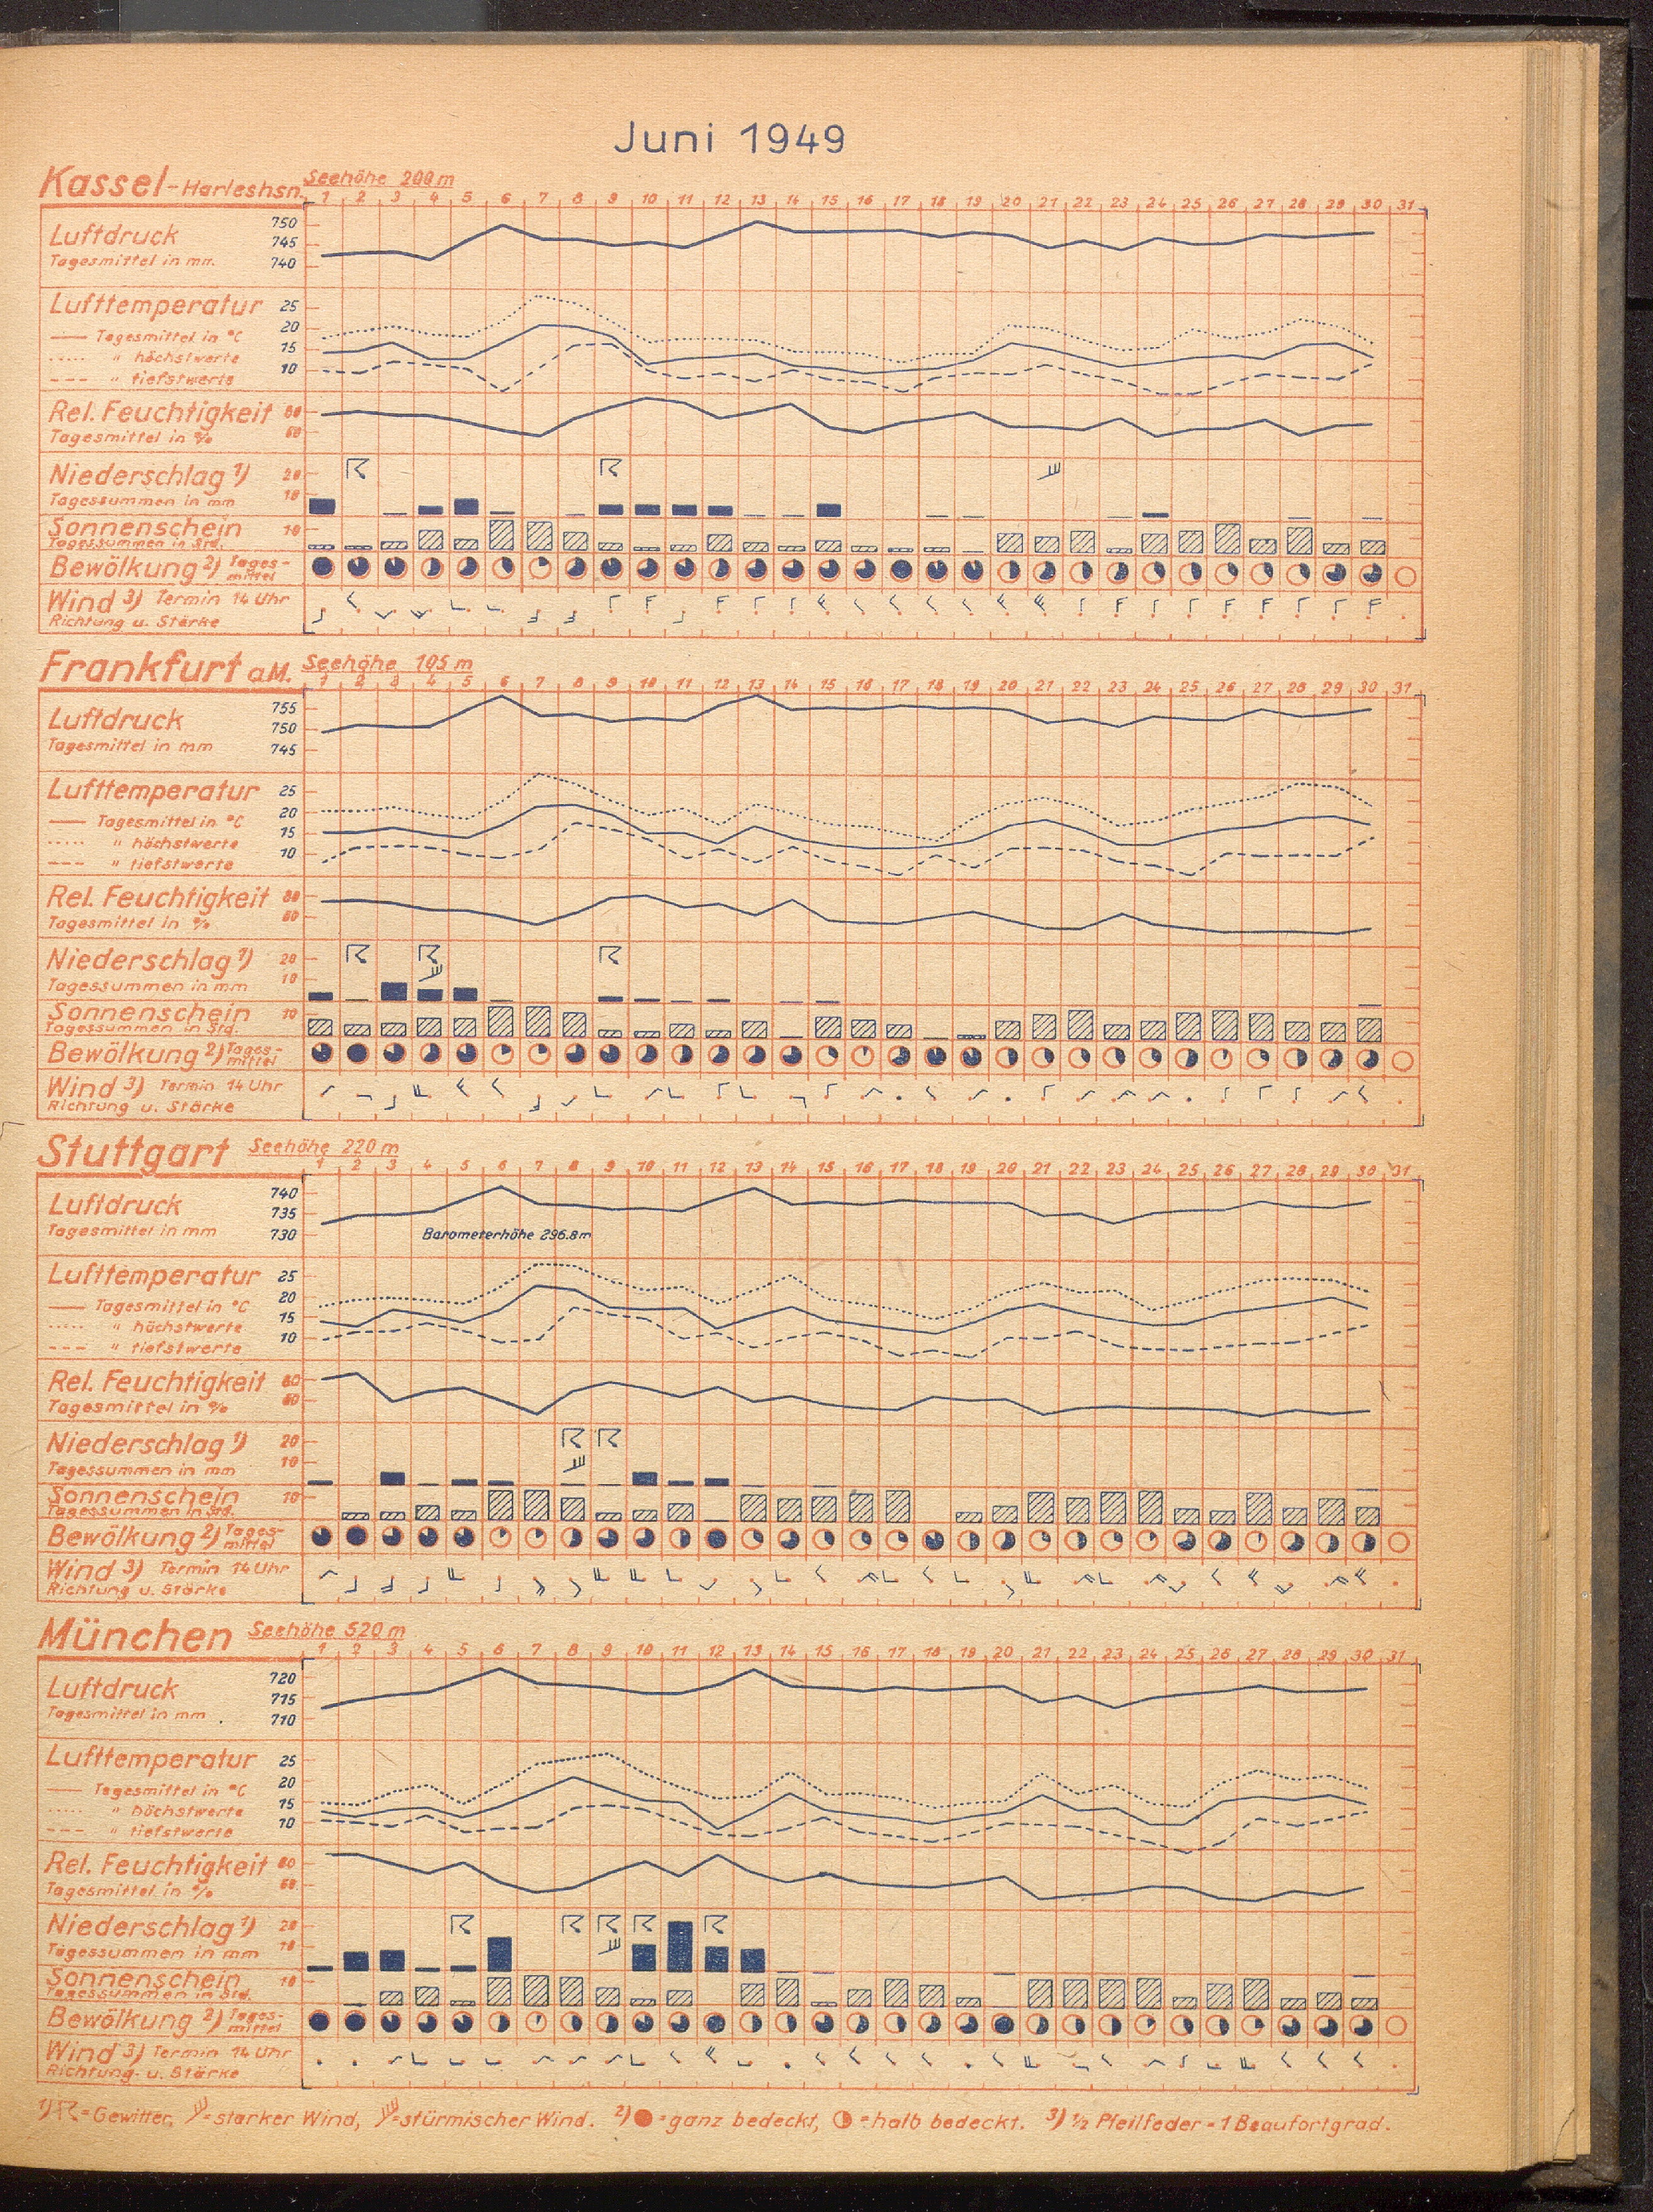 Juni 1949
Kassel-Harleshsn. Seehöhe 200 m
1 2 3 4 5 6 7 8 9 10 11 12 13 14 15 16 17 18 19 20 21 22 23 24 25 26 27 28 29 30 31
Luftdruck 750
745
Tagesmittel in mm 740
Lufttemperatur 25
20
Tagesmittel in °C
15
" höchstwerte
10
" tiefstwerte
Rel. Feuchtigkeit 80
Tagesmittel in % 60
Niederschlag 1) 20
Tagessummen in mm 10
Sonnenschein 10
Tagessummen in Std.
Bewölkung 2) Tages-
mittel
Wind 3) Termin 14 Uhr
Richtung u. Stärke
Frankfurt a.M. Seehöhe 105 m
1 2 3 4 5 6 7 8 9 10 11 12 13 14 15 16 17 18 19 20 21 22 23 24 25 26 27 28 29 30 31
Luftdruck 755
750
Tagesmittel in mm 745
Lufttemperatur 25
20
Tagesmittel in °C
15
" höchstwerte
10
" tiefstwerte
Rel. Feuchtigkeit 80
Tagesmittel in % 60
Niederschlag 1) 20
Tagessummen in mm 10
Sonnenschein 10
Tagessummen in Std.
Bewölkung 2) Tages-
mittel
Wind 3) Termin 14 Uhr
Richtung u. Stärke
Stuttgart Seehöhe 220 m
1 2 3 4 5 6 7 8 9 10 11 12 13 14 15 16 17 18 19 20 21 22 23 24 25 26 27 28 29 30 31
Luftdruck 740
735
Tagesmittel in mm 730 Barometerhöhe 296.8 m
Lufttemperatur 25
20
Tagesmittel in °C
15
" höchstwerte
10
" tiefstwerte
Rel. Feuchtigkeit 80
Tagesmittel in % 60
Niederschlag 1) 20
Tagessummen in mm 10
Sonnenschein 10
Tagessummen in Std.
Bewölkung 2) Tages-
mittel
Wind 3) Termin 14 Uhr
Richtung u. Stärke
München Seehöhe 520 m
1 2 3 4 5 6 7 8 9 10 11 12 13 14 15 16 17 18 19 20 21 22 23 24 25 26 27 28 29 30 31
Luftdruck 720
715
Tagesmittel in mm 710
Lufttemperatur 25
20
Tagesmittel in °C
15
" höchstwerte
10
" tiefstwerte
Rel. Feuchtigkeit 80
Tagesmittel in % 60
Niederschlag 1) 20
Tagessummen in mm 10
Sonnenschein 10
Tagessummen in Std.
Bewölkung 2) Tages-
mittel
Wind 3) Termin 14 Uhr
Richtung u. Stärke
1) = Gewitter, = starker Wind, = stürmischer Wind. 2) = ganz bedeckt, = halb bedeckt. 3) 1/2 Pfeilfeder = 1 Beaufortgrad.